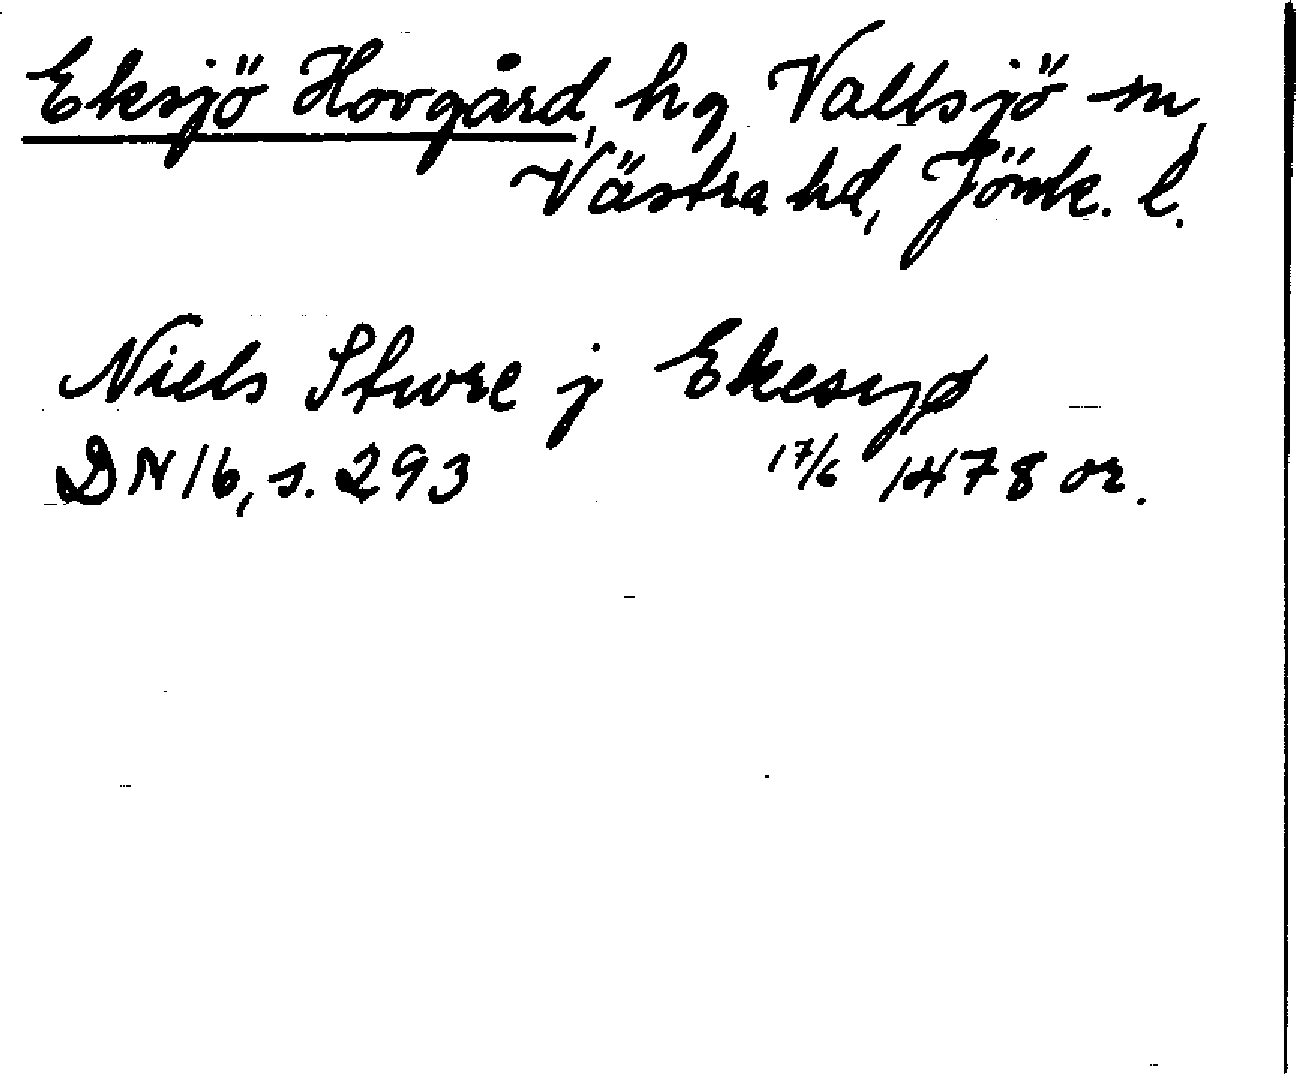 Eksjö Hovgård, hg, Vallsjö sn,
Västra hd, Jönk. l.
Niels Stwre j Ekesyø
DN 16, s. 293 17/6 1478 or.